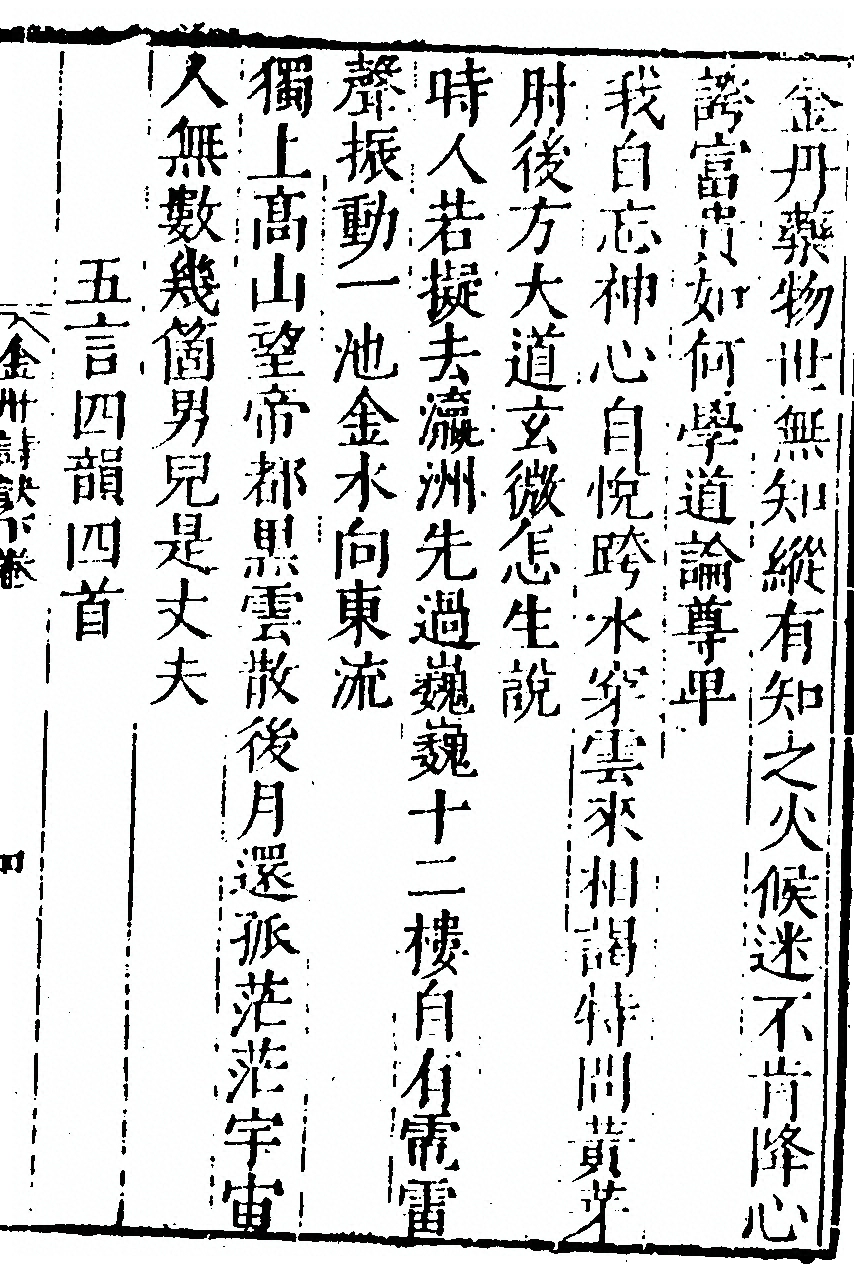 金丹藥物世無知縱有知之火候迷不肯降心
誇富貴如何學道論尊卑
我自忘神心自悅跨水穿雲來相謁特問黃芽
肘後方大道玄微怎生說
時人若擬去瀛洲先過巍巍十二樓自有電雷
聲振動一池金水向東流
獨上高山望帝都黑雲散後月還孤茫茫宇宙
人無數幾箇男兒是丈夫
五言四韻四首
金丹詩訣下卷
四